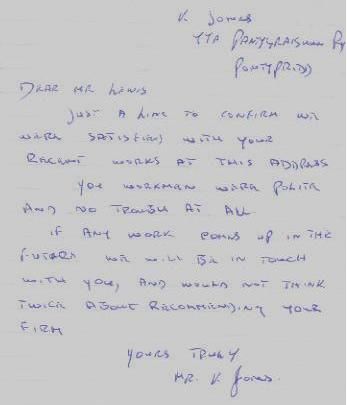 V JONES
47A PANTYGRAIGWEN RD
PONTYPRIDD
DEAR MR LEWIS
JUST A LINE TO CONFIRM WE
WERE SATISFIED WITH YOUR
RECENT WORKS AT THIS ADDRESS
YOU WORKMEN WERE POLITE
AND NO TROUBLE AT ALL
IF ANY WORK COMES UP IN THE
FUTURE WE WILL BE IN TOUCH
WITH YOU, AND WOULD NOT THINK
TWICE ABOUT RECOMMENDING YOUR
FIRM
YOURS TRULY
MR. V Jones.